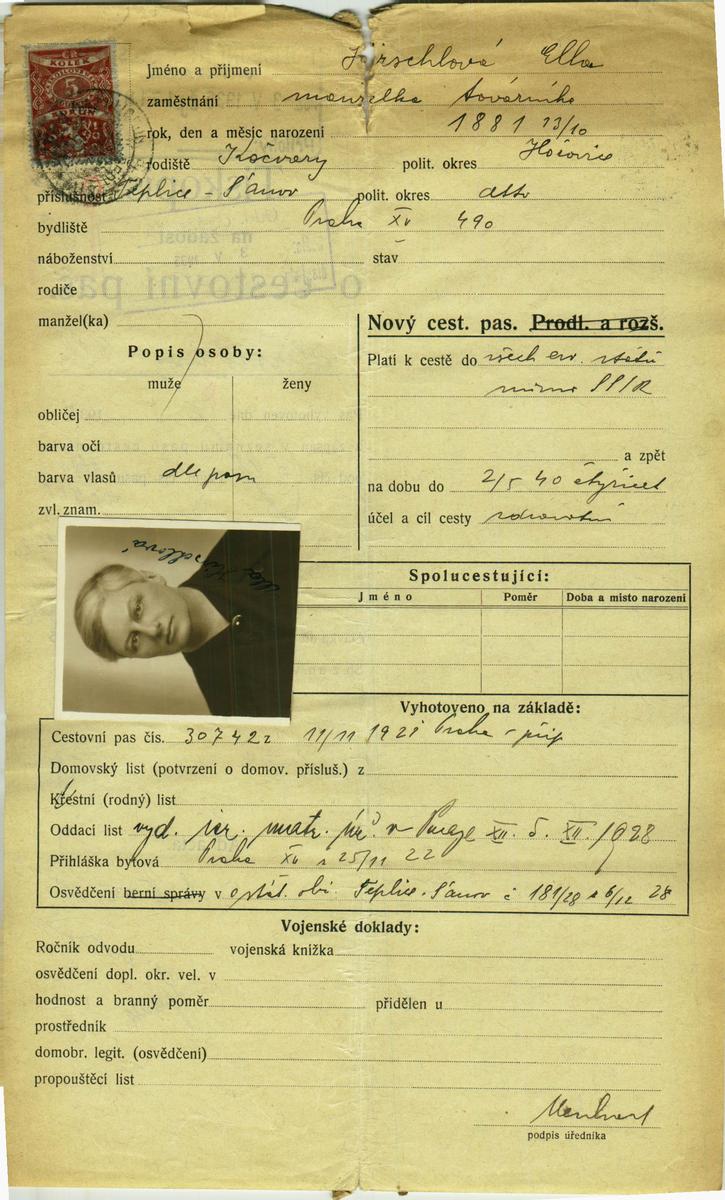 ČR
KOLEK
5
Jméno a přijmení Hirschlová Ella
zaměstnání manželka továrníka
rok, den a měsíc narození 1881 23/10
rodiště polit. okres Hořovice
příslušnost Teplice - Šanov polit. okres detto
bydliště Praha XV 490
náboženství stav
rodiče
manžel(ka)
Nový cest. pas. Prodl. a rozš.
Popis osoby:
muže ženy
obličej
barva očí
barva vlasů dle pasu
zvl. znam.
Platí k cestě do všech evr. států
mimo SSSR
a zpět
na dobu do 2/5 40 čtyřicet
účel a cíl cesty zdravotní
Spolucestující:
Jméno Poměr Doba a místo narození
Ella Hirschlová
Vyhotoveno na základě:
Cestovní pas čís. 307422 11/11 1921 Praha
Domovský list (potvrzení o domov. přísluš.) z
Křestní (rodný) list
Oddací list vyd. isr. matr. úř. v Praze XII. 5. XII. 1928
Přihláška bytová Praha XV z 25/11 22
Osvědčení berní správy v o stát. obč. Teplice - Šanov č 181/28 z 6/12 28
Vojenské doklady:
Ročník odvodu vojenská knížka
osvědčení dopl. okr. vel. v
hodnost a branný poměr přidělen u
prostředník
domobr. legit. (osvědčení)
propouštěcí list
podpis úředníka